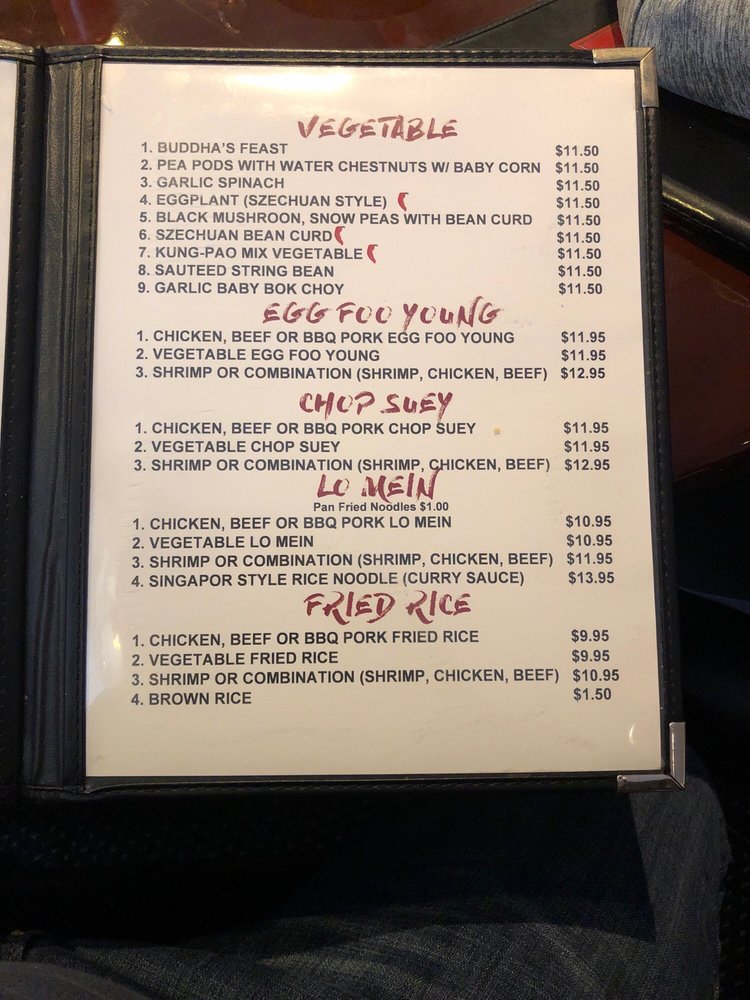 VEGETABLE
1. BUDDHA'S FEAST $11.50
2. PEA PODS WITH WATER CHESTNUTS W/ BABY CORN $11.50
3. GARLIC SPINACH $11.50
4. EGGPLANT (SZECHUAN STYLE) $11.50
5. BLACK MUSHROON, SNOW PEAS WITH BEAN CURD $11.50
6. SZECHUAN BEAN CURD $11.50
7. KUNG-PAO MIX VEGETABLE $11.50
8. SAUTEED STRING BEAN $11.50
9. GARLIC BABY BOK CHOY $11.50
EGG FOO YOUNG
1. CHICKEN, BEEF OR BBQ PORK EGG FOO YOUNG $11.95
2. VEGETABLE EGG FOO YOUNG $11.95
3. SHRIMP OR COMBINATION (SHRIMP, CHICKEN, BEEF) $12.95
CHOP SUEY
1. CHICKEN, BEEF OR BBQ PORK CHOP SUEY $11.95
2. VEGETABLE CHOP SUEY $11.95
3. SHRIMP OR COMBINATION (SHRIMP, CHICKEN, BEEF) $12.95
LO MEIN
Pan Fried Noodles $1.00
1. CHICKEN, BEEF OR BBQ PORK LO MEIN $10.95
2. VEGETABLE LO MEIN $10.95
3. SHRIMP OR COMBINATION (SHRIMP, CHICKEN, BEEF) $11.95
4. SINGAPOR STYLE RICE NOODLE (CURRY SAUCE) $13.95
FRIED RICE
1. CHICKEN, BEEF OR BBQ PORK FRIED RICE $9.95
2. VEGETABLE FRIED RICE $9.95
3. SHRIMP OR COMBINATION (SHRIMP, CHICKEN, BEEF) $10.95
4. BROWN RICE $1.50